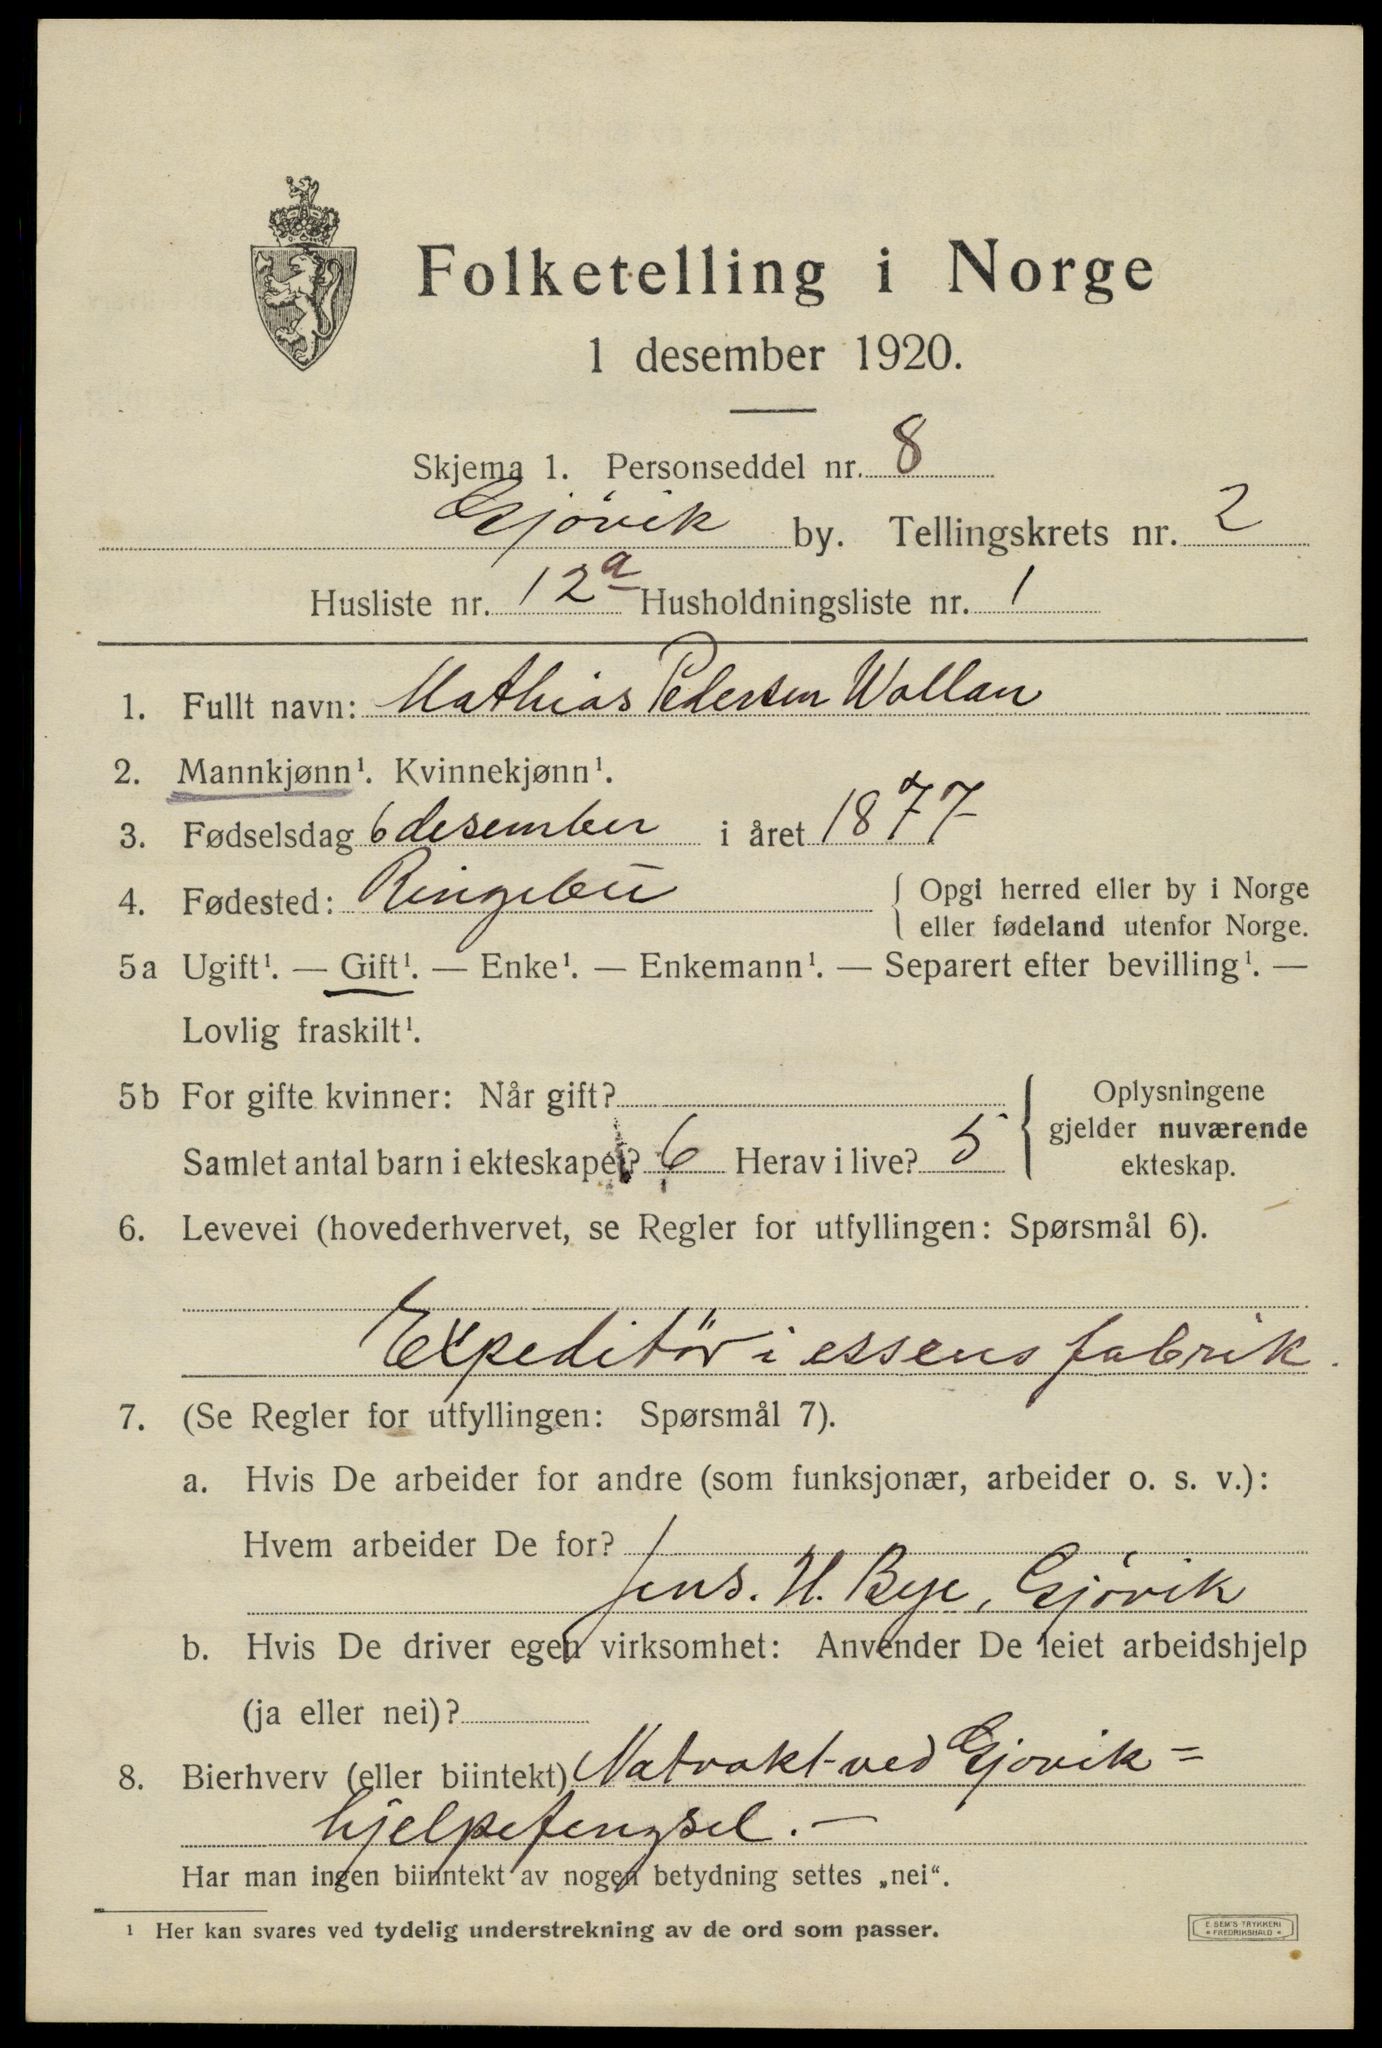 Folketelling i Norge
1 desember 1920.
Skjema 1. Personseddel nr. 8
Gjövik by. Tellingskrets nr. 2
Husliste nr. 12a Husholdningsliste nr. 1
1. Fullt navn: Mathias Pedersen Wollan
2. Mannkjønn¹. Kvinnekjønn¹.
3. Fødselsdag 6 desember i året 1877
4. Fødested: Ringebu { Opgi herred eller by i Norge
eller fødeland utenfor Norge.
5a Ugift¹. — Gift¹. — Enke¹. — Enkemann¹. — Separert efter bevilling¹. —
Lovlig fraskilt¹.
5b For gifte kvinner: Når gift? { Oplysningene
gjelder nuværende
Samlet antal barn i ekteskapet? 6 Herav i live? 5 ekteskap.
6. Levevei (hovederhvervet, se Regler for utfyllingen: Spørsmål 6).
Expeditör i essensfabrik.
7. (Se Regler for utfyllingen: Spørsmål 7).
a. Hvis De arbeider for andre (som funksjonær, arbeider o. s. v.):
Hvem arbeider De for?
Jens. H. Bye, Gjövik
b. Hvis De driver egen virksomhet: Anvender De leiet arbeidshjelp
(ja eller nei)?
8. Bierhverv (eller biintekt) Natvakt ved Gjovik=
hjelpefengsel. —
Har man ingen biinntekt av nogen betydning settes „nei“.
¹ Her kan svares ved tydelig understrekning av de ord som passer.
E. SEM'S TRYKKERI
• FREDRIKSHALD •